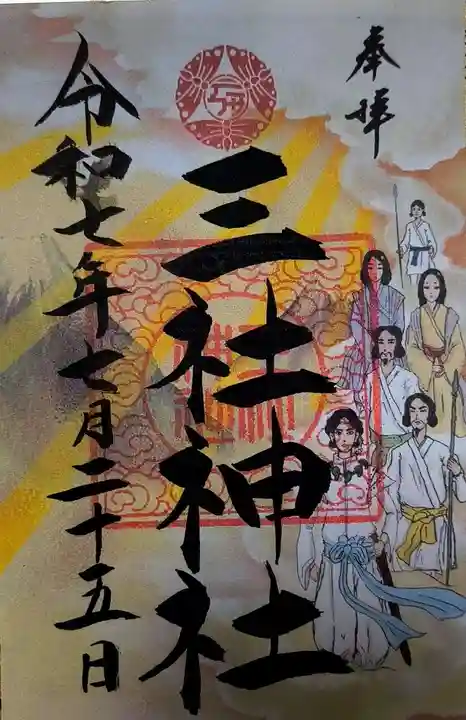 奉拝
三社神社
令和七年七月二十五日